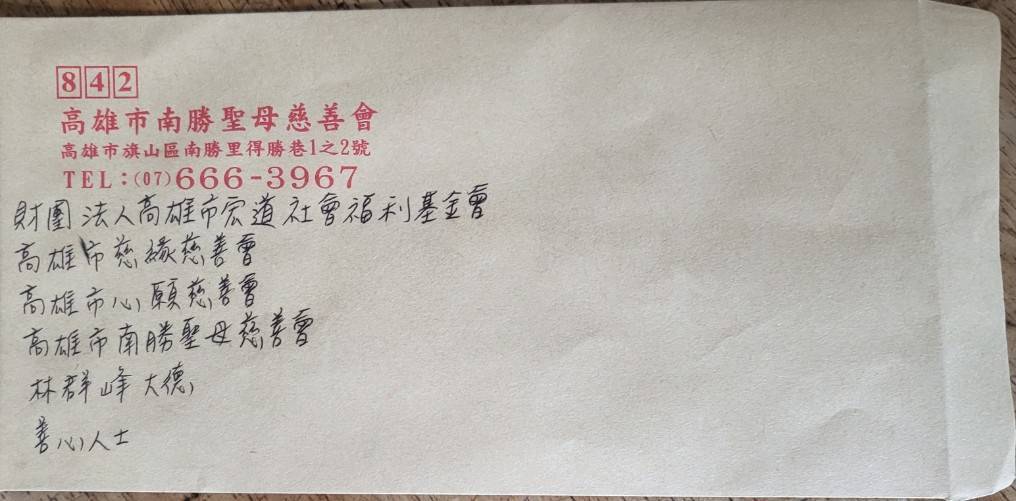 842
高雄市南勝聖母慈善會
高雄市旗山區南勝里得勝巷1之2號
TEL:(07)666-3967
財團法人高雄市宏道社會福利基金會
高雄市慈緣慈善會
高雄市心願慈善會
高雄市南勝聖母慈善會
林群峰大德,
善心人士